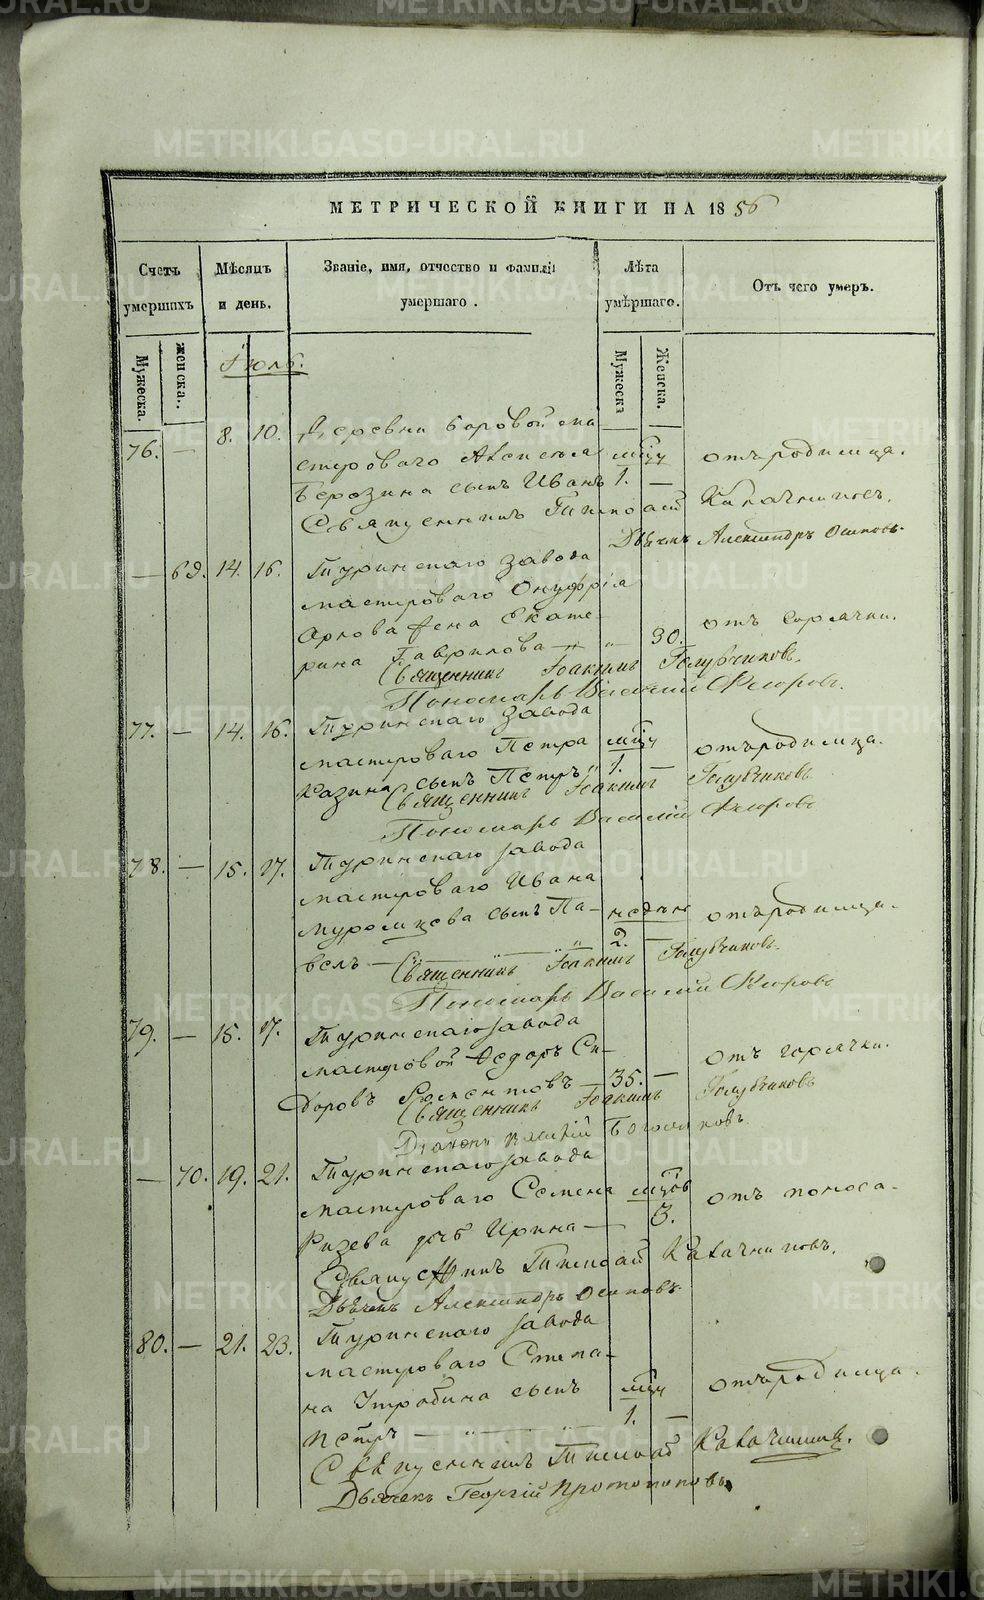 МЕТРИЧЕСКОЙ КНИГИ НА 1856
Счетъ умершихъ
Мѣсяцъ и день.
Званіе, имя, отчество и фамилія умершаго.
Лѣта умершаго.
Отъ чего умеръ.
Мужеска.
женска.
Мужеска
Женска.
Іюль.
76. — 8. 10. Деревни Боровой ма
стероваго Алексѣя мцъ отъ родимца.
Берозина сынъ Иванъ 1. —
Священникъ Тимофей Калачниковъ.
Дьячекъ Александръ Осиповъ.
— 69. 14. 16. Туринскаго завода
мастероваго Онуфрія
Арлова жена Екате- отъ горячки.
рина Гаврилова — " 30.
Священникъ Іоакимъ Голубчиковъ.
Пономарь Василій Флоровъ.
77. — 14. 16. Туринскаго завода
мастероваго Петра мцъ отъ родимца.
Казина сынъ Петръ 1. —
Священникъ Іоакимъ Голубчиковъ
Пономарь Василій Флоровъ
78. — 15. 17. Туринскаго завода
мастероваго Ивана
сынъ Па- недѣл отъ родимца.
велъ — 2. —
Священникъ Іоакимъ Голубчиковъ.
Пономарь Василій Флоровъ
79. — 15. 17. Туринскаго завода
мастеровой Ѳедоръ Си- отъ горячки.
доровъ 35. —
Священникъ Іоакимъ Голубчиковъ
Діаконъ Василій
— 70. 19. 21. Туринскаго завода
мастероваго Семена мцов отъ поноса.
дочь Ирина — 3.
Священникъ Тимофей Калачниковъ.
Дьячекъ Александръ Осиповъ.
80. — 21. 23. Туринскаго завода
мастероваго Степа-
на Утробина сынъ мцъ отъ родимца.
Петръ — " — " 1. —
Священникъ Тимофей Калачниковъ.
Дьячекъ Георгій Протопоповъ.
METRIKI.GASO-URAL.RU